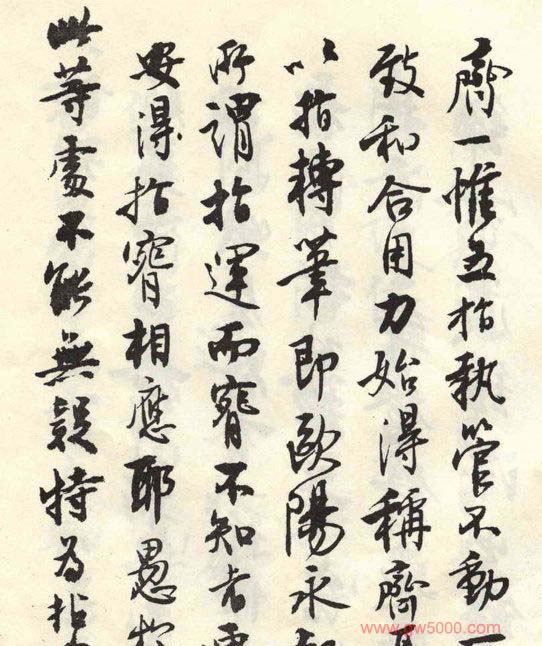 齊一惟五指執管不動一
致和合用力始得稱齊
以指轉筆即歐陽永
所謂指運而腕不知者
安得指腕相應耶愚
此等處不能無疑特為指
www.gw5000.com